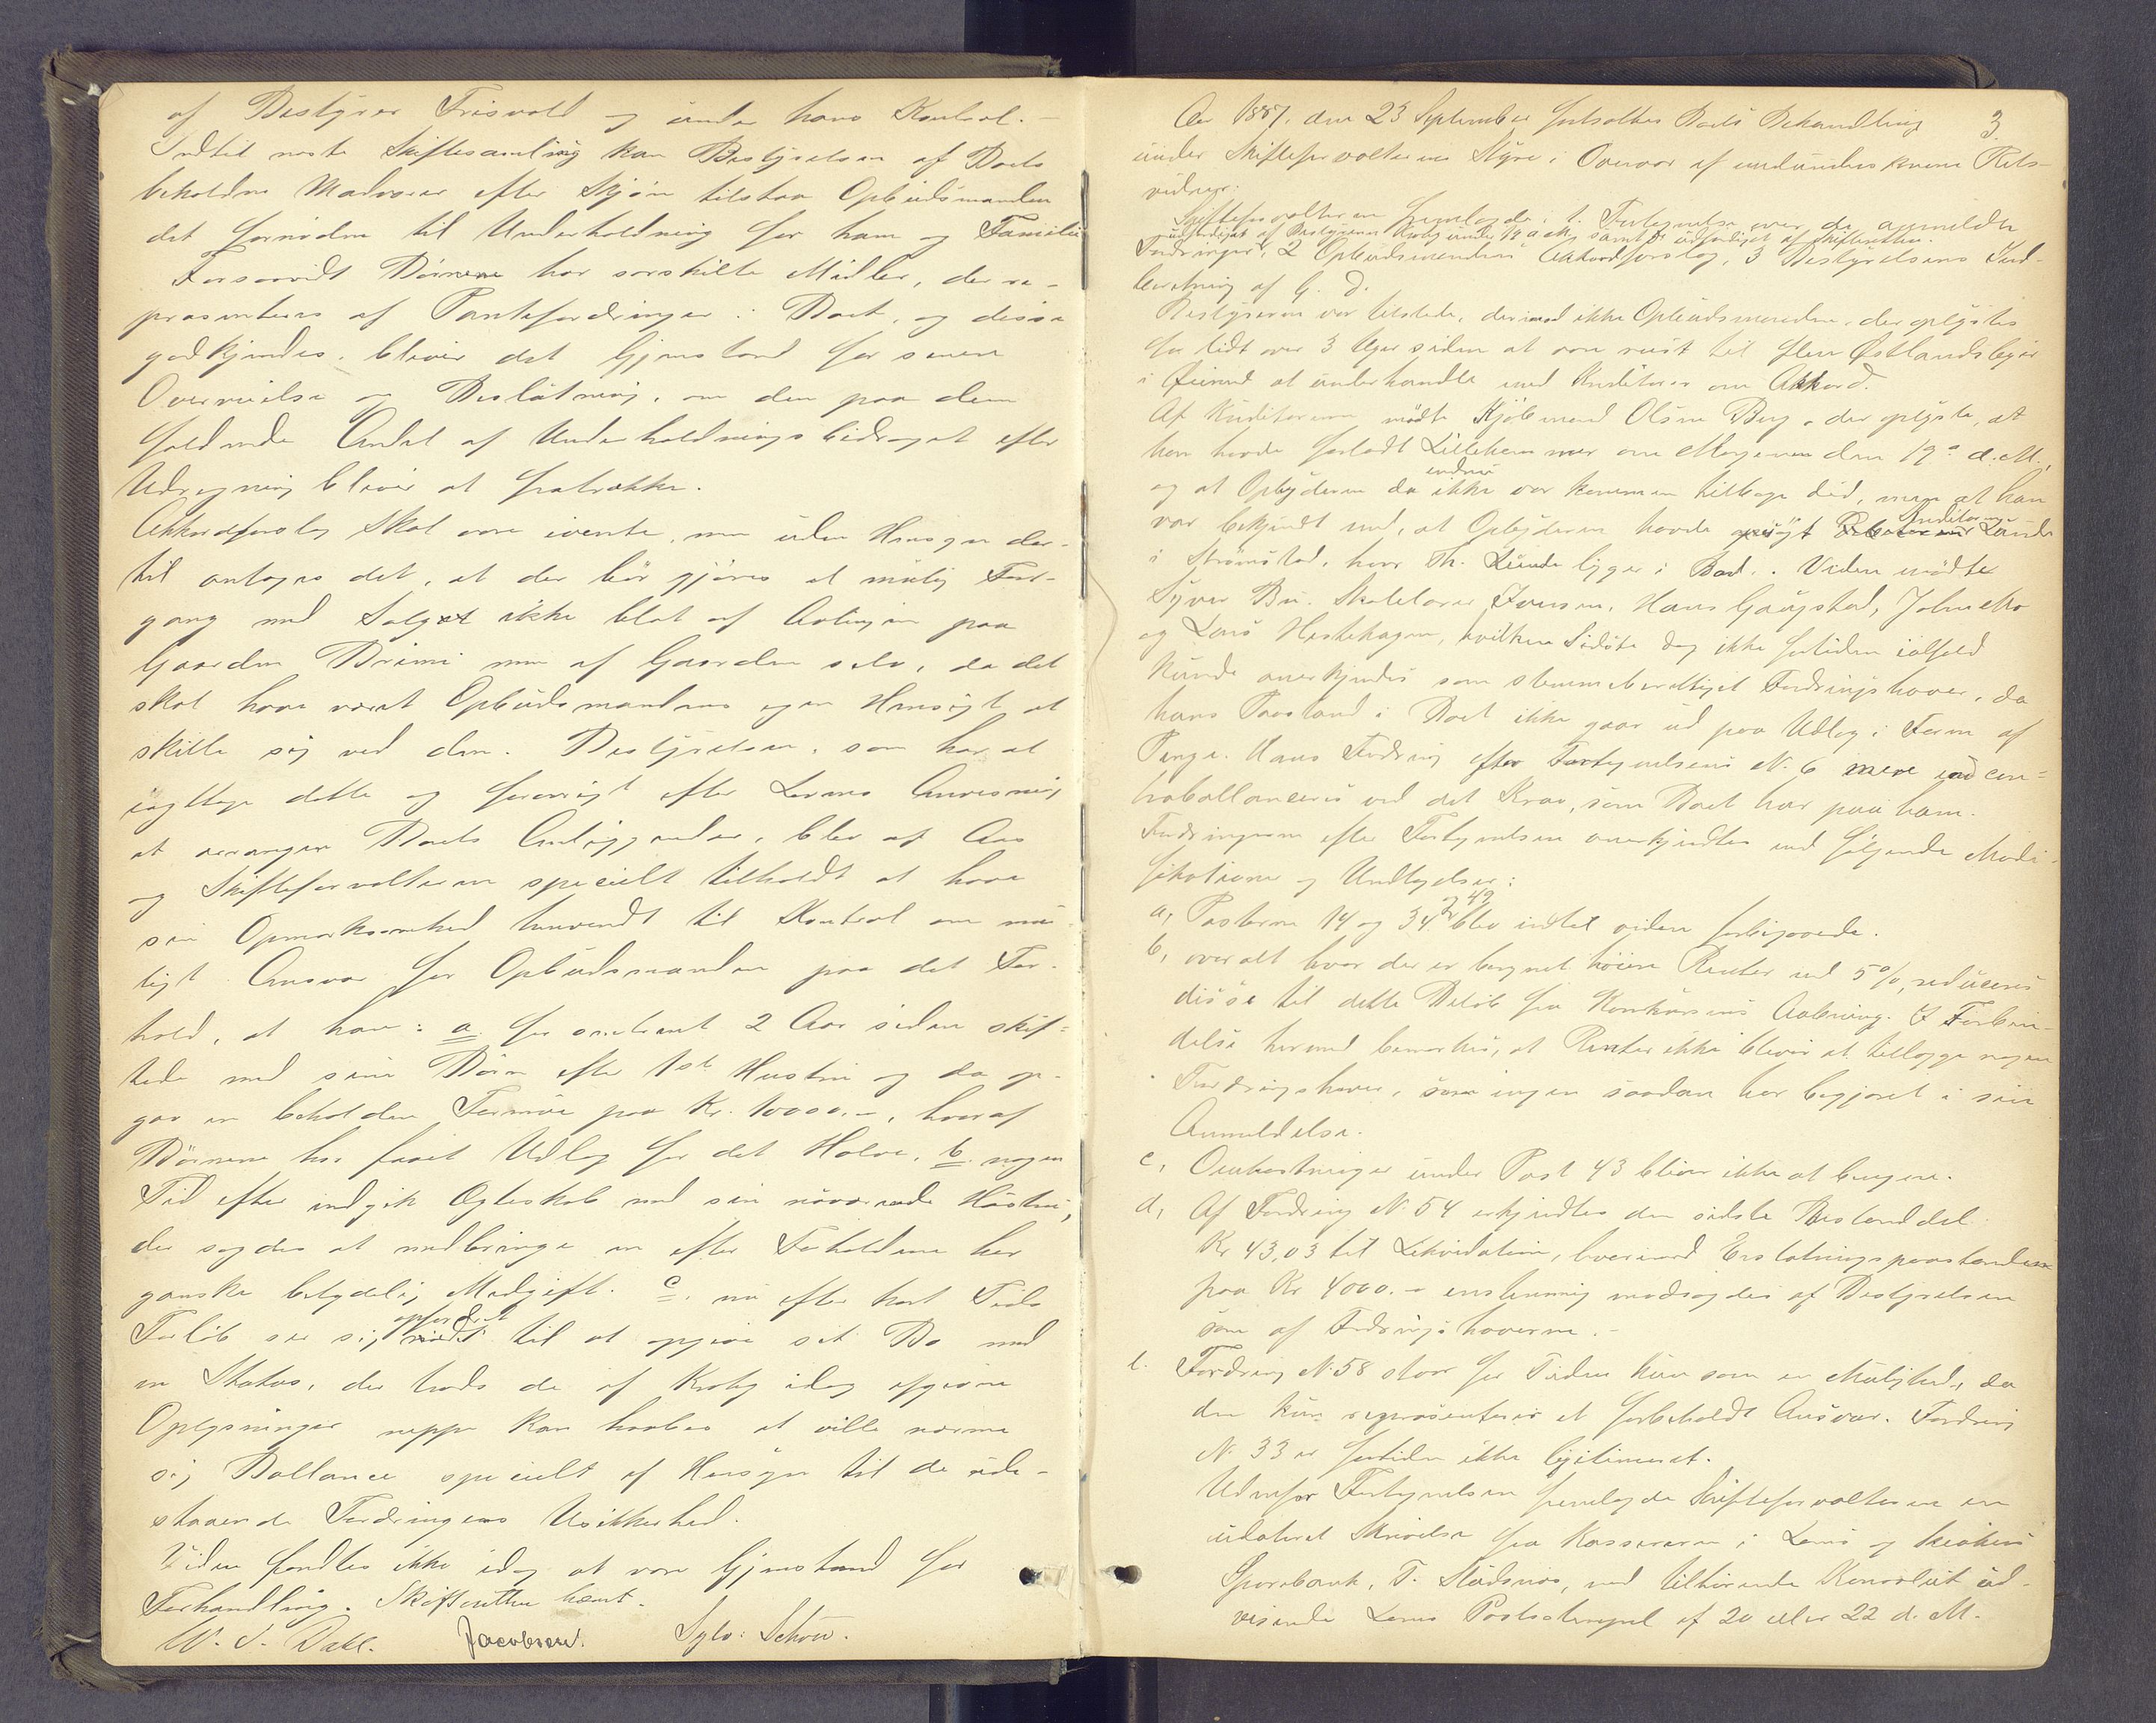 af Bestyrer Frisvold og under hans Kontrol. –
Indtil næste Skiftesamling kan Bestyrelsen af Boets
beholdne Madvarer efter Skjøn tilstaa Opbudsmanden
det fornødne til Underholdning for ham og Familie
Forsaavidt Børnene har særskilte Midler, der re-
præsenteres af Pantefordringer i Boet, og disse
godkjendes, bliver det Gjenstand for senere
Overveielse og Beslutning, om den paa dem
faldende Andel af Underholdningsbidraget efter
Udregning bliver at fratrække.
Akkordforslag skal være ivente, men uden Hensyn der-
til antages det, at der bør gjøres al mulig Frem-
gang med Salget ikke blot af Avlingen paa
Gaarden Brimi men af Gaarden selv, da det
skal have været Opbudsmandens egen Hensigt at
skille sig ved den. Bestyrelsen, som har at
iagttage dette og forøvrigt efter Lovens Anvisning
at arrangere Boets Anliggender, blev af
og Skifteforvalteren specielt tilholdt at have
sin Opmærksomhed henvendt til Kontrol om mu-
ligt Ansvar for Opbudsmanden paa det For-
hold, at han: a. for omtrent 2 Aar siden skif-
tede med sine Børn efter 1ste Hustru og da op-
gav en beholden Formue paa Kr. 10000.–, hvoraf
Børnene har faaet Udlæg for det Halve, b. nogen
Tid efter indgik Ægteskab med sin nuværende Hustru,
der sagdes at medbringe en efter Forholdene her
ganske betydelig Medgift. c. nu efter kort Tids
opfordret
Forløb ser sig nødt til at opgive sit Bo med
en Status, der trods de af Kroby idag afgivne
Oplysninger neppe kan haabes at ville nærme
sig Ballance specielt af Hensyn til de ude-
staaende Fordringers Usikkerhed.
Viden fandtes ikke idag at være Gjenstand for
Forhandling. Skifteretten hævet.
W. S. Dahl. Jacobsen. Sylv: Schou.
Aar 1887, den 23 September fortsattes Boets Behandling 3.
under Skifteforvalterens Styre i Overvær af undertegnede Rets-
vidner:
Skifteforvalteren fremlagde: 1. Fortegnelse over de anmeldte
udfærdiget af Bestyreren Kroby under 19 d. M. samt udfærdiget af Skifteretten.
Fordringer, 2 Opbudsmandens Akkordforslag, 3 Bestyrelsens Ind-
beretning af G. D.
Bestyreren var tilstede, derimod ikke Opbudsmanden, der oplystes
for lidt over 3 Uger siden at være reist til flere Østlandsbyer
i Øiemed at underhandle med Kreditorer om Akkord.
Af Kreditorerne mødte Kjøbmand Olsen Berg, der oplyste, at
han havde forladt Lillehammer om Morgenen den 19de d. M.,
endnu
og at Opbyderen da ikke var kommen tilbage did, men at han
Kreditoren
var bekjendt med, at Opbyderen havde Lunde
i Strømstad, hvor Th. Lunde ligger i Bad. Viden mødte
Syver Bu. Skolelærer Iversen, Hans Gaupstad, John Mo
og Lars Hestehagen, hvilken Sidste dog ikke fortiden ialfald
kunde anerkjendes som stemmeberettiget Fordringshaver, da
hans Paastand i Boet ikke gaar ud paa Udlæg i Form af
Penge. Hans Fordring efter Fortegnelsens N. 6 mere end con-
traballanceres ved det Krav, som Boet har paa ham.
Fordringerne efter Fortegnelsen anerkjendtes med følgende Modi-
fikationer og Undtagelser:
a, Posterne 14 og 34 & 49 blev indtil videre forbigaaede.
b, overalt hvor der er beregnet høiere Renter end 5%, reduceres
disse til dette Beløb fra Konkursens Aabning. I Forbin-
delse hermed bemærkes, at Renter ikke bliver at tillægge nogen
Fordringshaver, som ingen saadan har begjæret i sin
Anmeldelse.
c, Omkostninger under Post 43 bliver ikke at beregne.
d, Af Fordring N. 54 erkjendtes den sidste Bestanddel
Kr 43,03 til Likvidation, hvorimod Erstatningspaastanden
paa Kr 4000.– enstemmig modsagdes af Bestyrelsen
som af Fordringshaverne. –
e. Fordring N. 58 staar for Tiden kun som en Mulighed, da
den kun repræsenterer et forbeholdt Ansvar. Fordring
N. 33 er fortiden ikke legitimeret.
Udenfor Fortegnelsen fremlagde Skifteforvalteren en
udateret Skrivelse fra Kassereren i Loms og Skiakers
Sparebank, T. Stadsnæs, med tilhørende Konvolut ud-
visende Loms Poststempel af 20 eller 22 d. M.